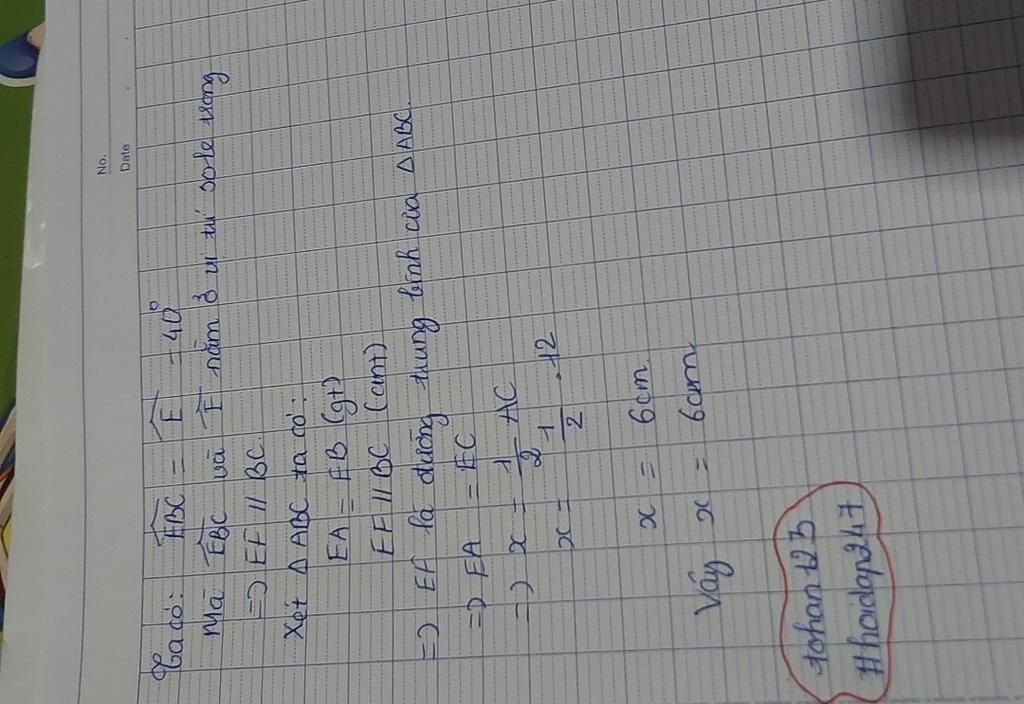 No.
Date
Ta có: EBC = E = 40°
Mà EBC và E nằm ở vị trí sole trong
=> EF // BC
Xét Δ ABC ta có:
EA = EB (gt)
EF // BC (cmt)
=> EF là đường trung bình của Δ ABC.
=> FA = FC
=> x = 1/2 AC
x = 1/2 . 12
x = 6cm
Vậy x = 6cm
tohan123
#hoidap247